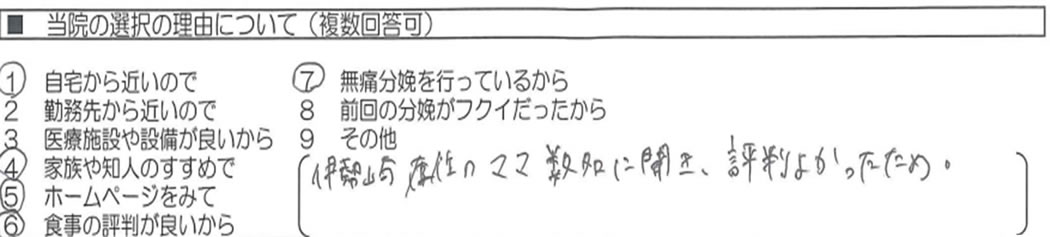 ■ 当院の選択の理由について（複数回答可）
① 自宅から近いので
2 勤務先から近いので
3 医療施設や設備が良いから
④ 家族や知人のすすめで
⑤ ホームページをみて
⑥ 食事の評判が良いから
⑦ 無痛分娩を行っているから
8 前回の分娩がフクイだったから
9 その他
（伊勢崎在住のママ数名に聞き、評判よかったため。）